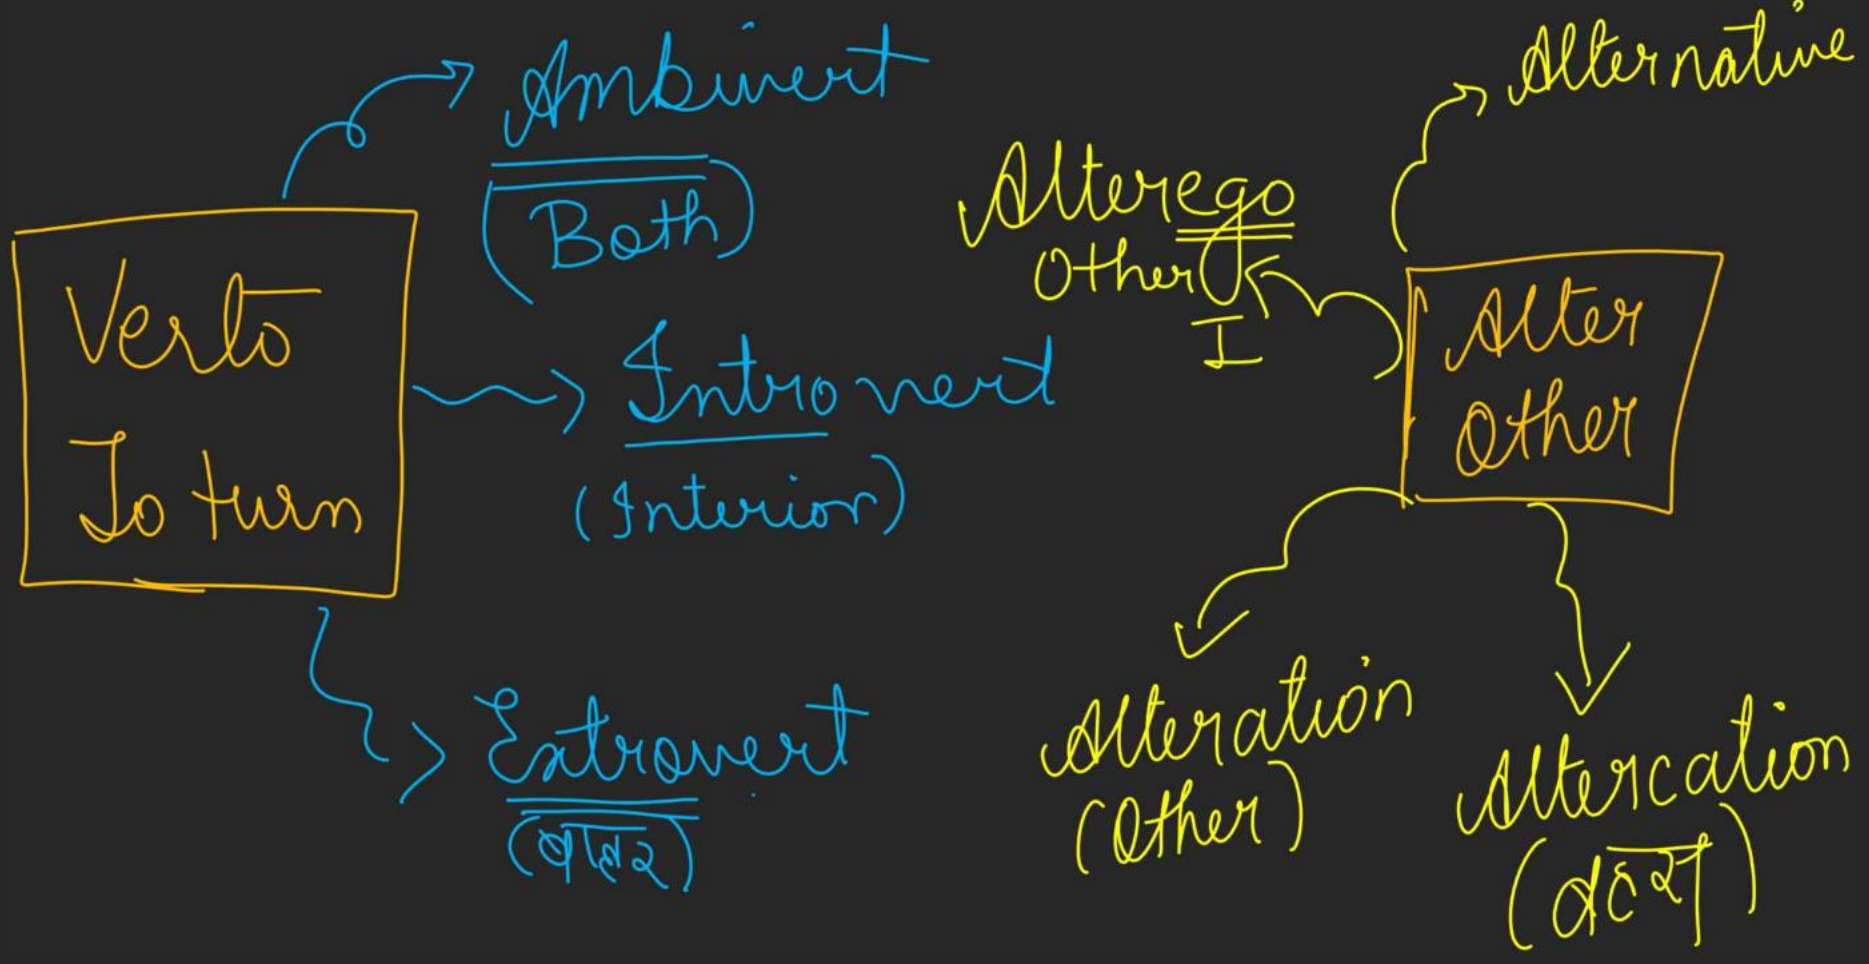 Verto
To turn
Ambivert
(Both)
Introvert
(Interior)
Extrovert
(बाहर)
Alter
Other
Alternative
Alterego
Other
I
Alteration
(Other)
Altercation
(बहस)